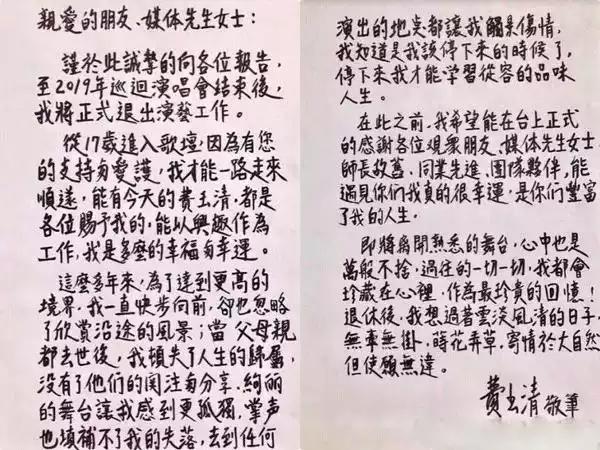 親愛的朋友、媒体先生女士：
謹於此誠摯的向各位報告，
至2019年巡迴演唱會結束後，
我將正式退出演藝工作。
從17歲進入歌壇，因為有您
的支持與愛護，我才能一路走來
順遂，能有今天的費玉清，都是
各位賜予我的，能以興趣作為
工作，我是多麼的幸福與幸運。
這麼多年來，為了達到更高的
境界，我一直快步向前，卻也忽略
了欣賞沿途的風景；當父母親
都去世後，我頓失了人生的歸屬，
沒有了他們的関注與分享，絢麗
的舞台讓我感到更孤獨，掌声
也填補不了我的失落，去到任何
演出的地点都讓我觸景傷情，
我知道是我該停下來的時候了，
停下來我才能學習從容的品味
人生。
在此之前，我希望能在台上正式
的感谢各位观衆朋友、媒体先生女士、
師長故舊、同業先進、團隊夥伴，能
遇見你們我真的很幸運，是你們豐富
了我的人生。
即將離開熟悉的舞台，心中也是
萬般不捨，過往的一切一切，我都會
珍藏在心裡，作為最珍貴的回憶！
退休後，我想過著雲淡風清的日子，
無牽無掛，蒔花弄草，寄情於大自然，
但使願無違。
費玉清 敬筆